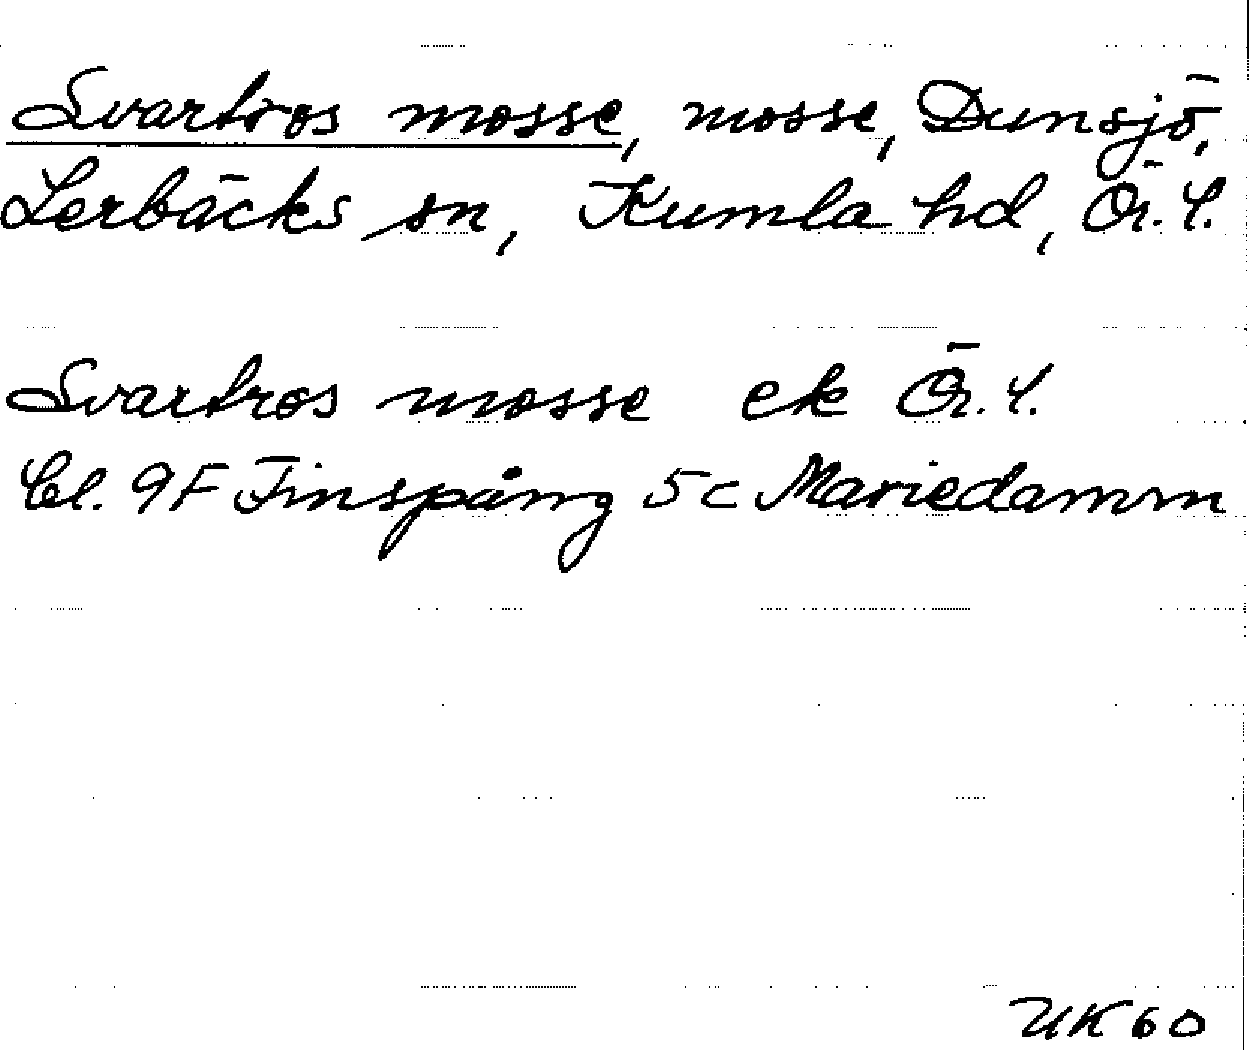 Svartros mosse, mosse, Dunsjö,
Lerbäcks sn, Kumla hd, Ör. l.
Svartros mosse ek Ör. l.
Bl. 9F Finspång 5c Mariedamm
UK 60